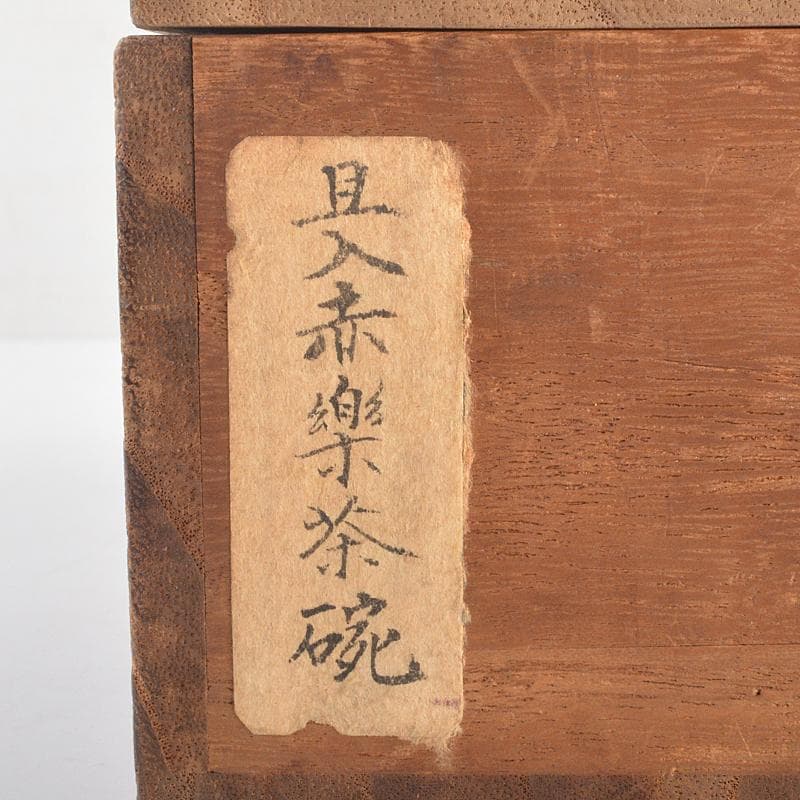 且入赤樂茶碗